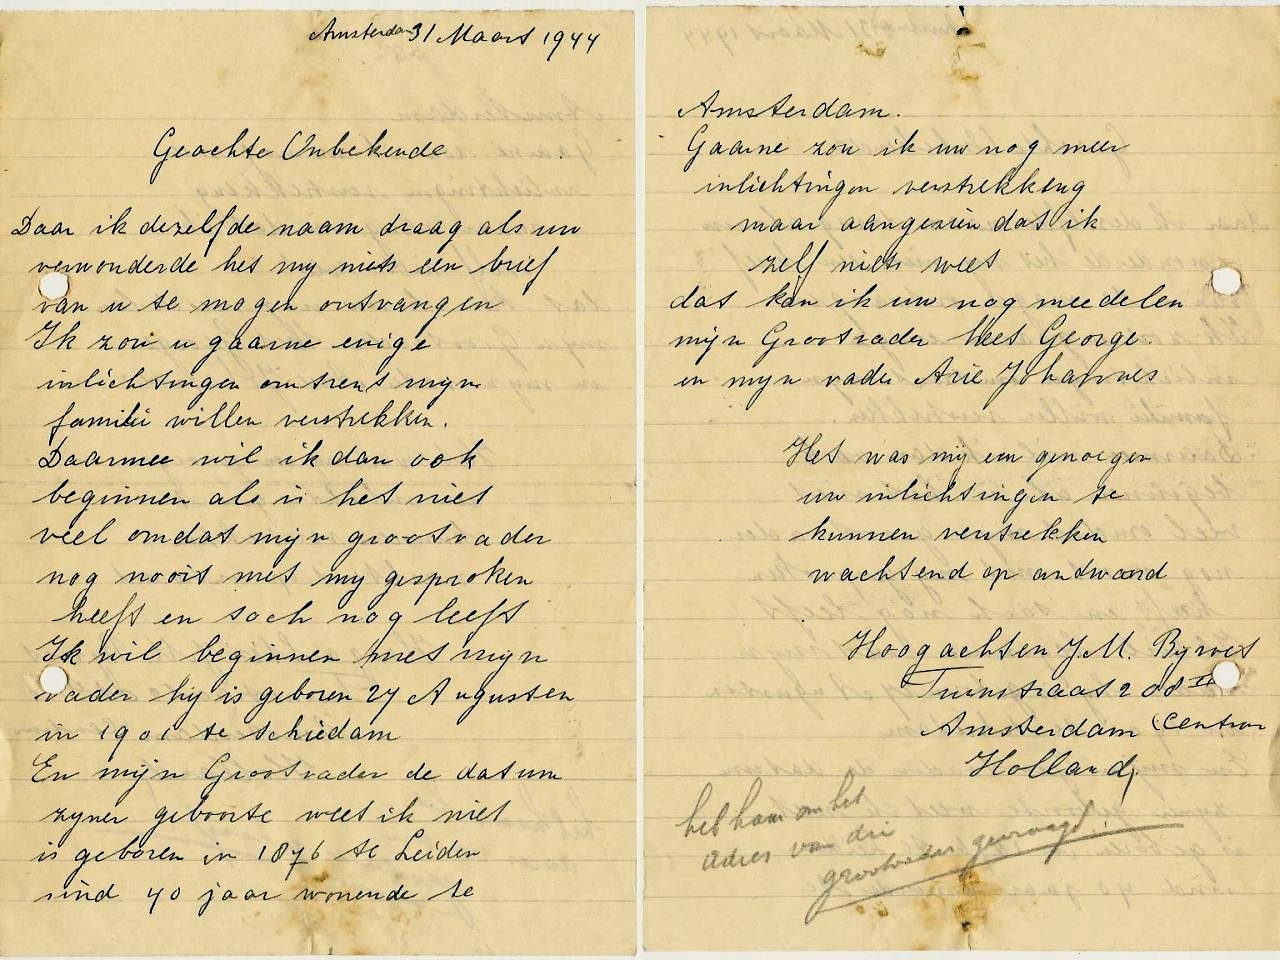 Amsterdam 31 Maart 1944
Geachte Onbekende
Daar ik dezelfde naam draag als uw
verwonderde het my niets een brief
van u te mogen ontvangen
Ik zou u gaarne enige
inlichtingen omtrent mijn
familie willen verstrekken.
Daarmee wil ik dan ook
beginnen als is het niet
veel omdat mijn grootvader
nog nooit met my gesproken
heeft en toch nog leeft
Ik wil beginnen met mijn
vader hy is geboren 27 Augusten
in 1901 te Schiedam
En mijn Grootvader de datum
zyner geboorte weet ik niet
is geboren in 1876 te Leiden
sind 40 jaar wonende te
Amsterdam.
Gaarne zou ik uw nog meer
inlichtingen verstrekkeng
maar aangezien dat ik
zelf niets weet
dat kan ik uw nog meedelen
mijn Grootvader heet George.
en mijn vader Arie Johannes
Het was mij een genoegen
uw inlichtingen te
kunnen verstrekken
wachtend op andwoord
Hoogachten J. M. Byvoet
Tuinstraat 208 II
Amsterdam (Centrum
Holland
heb haar om het
adres van die
grootvader gevraagd!